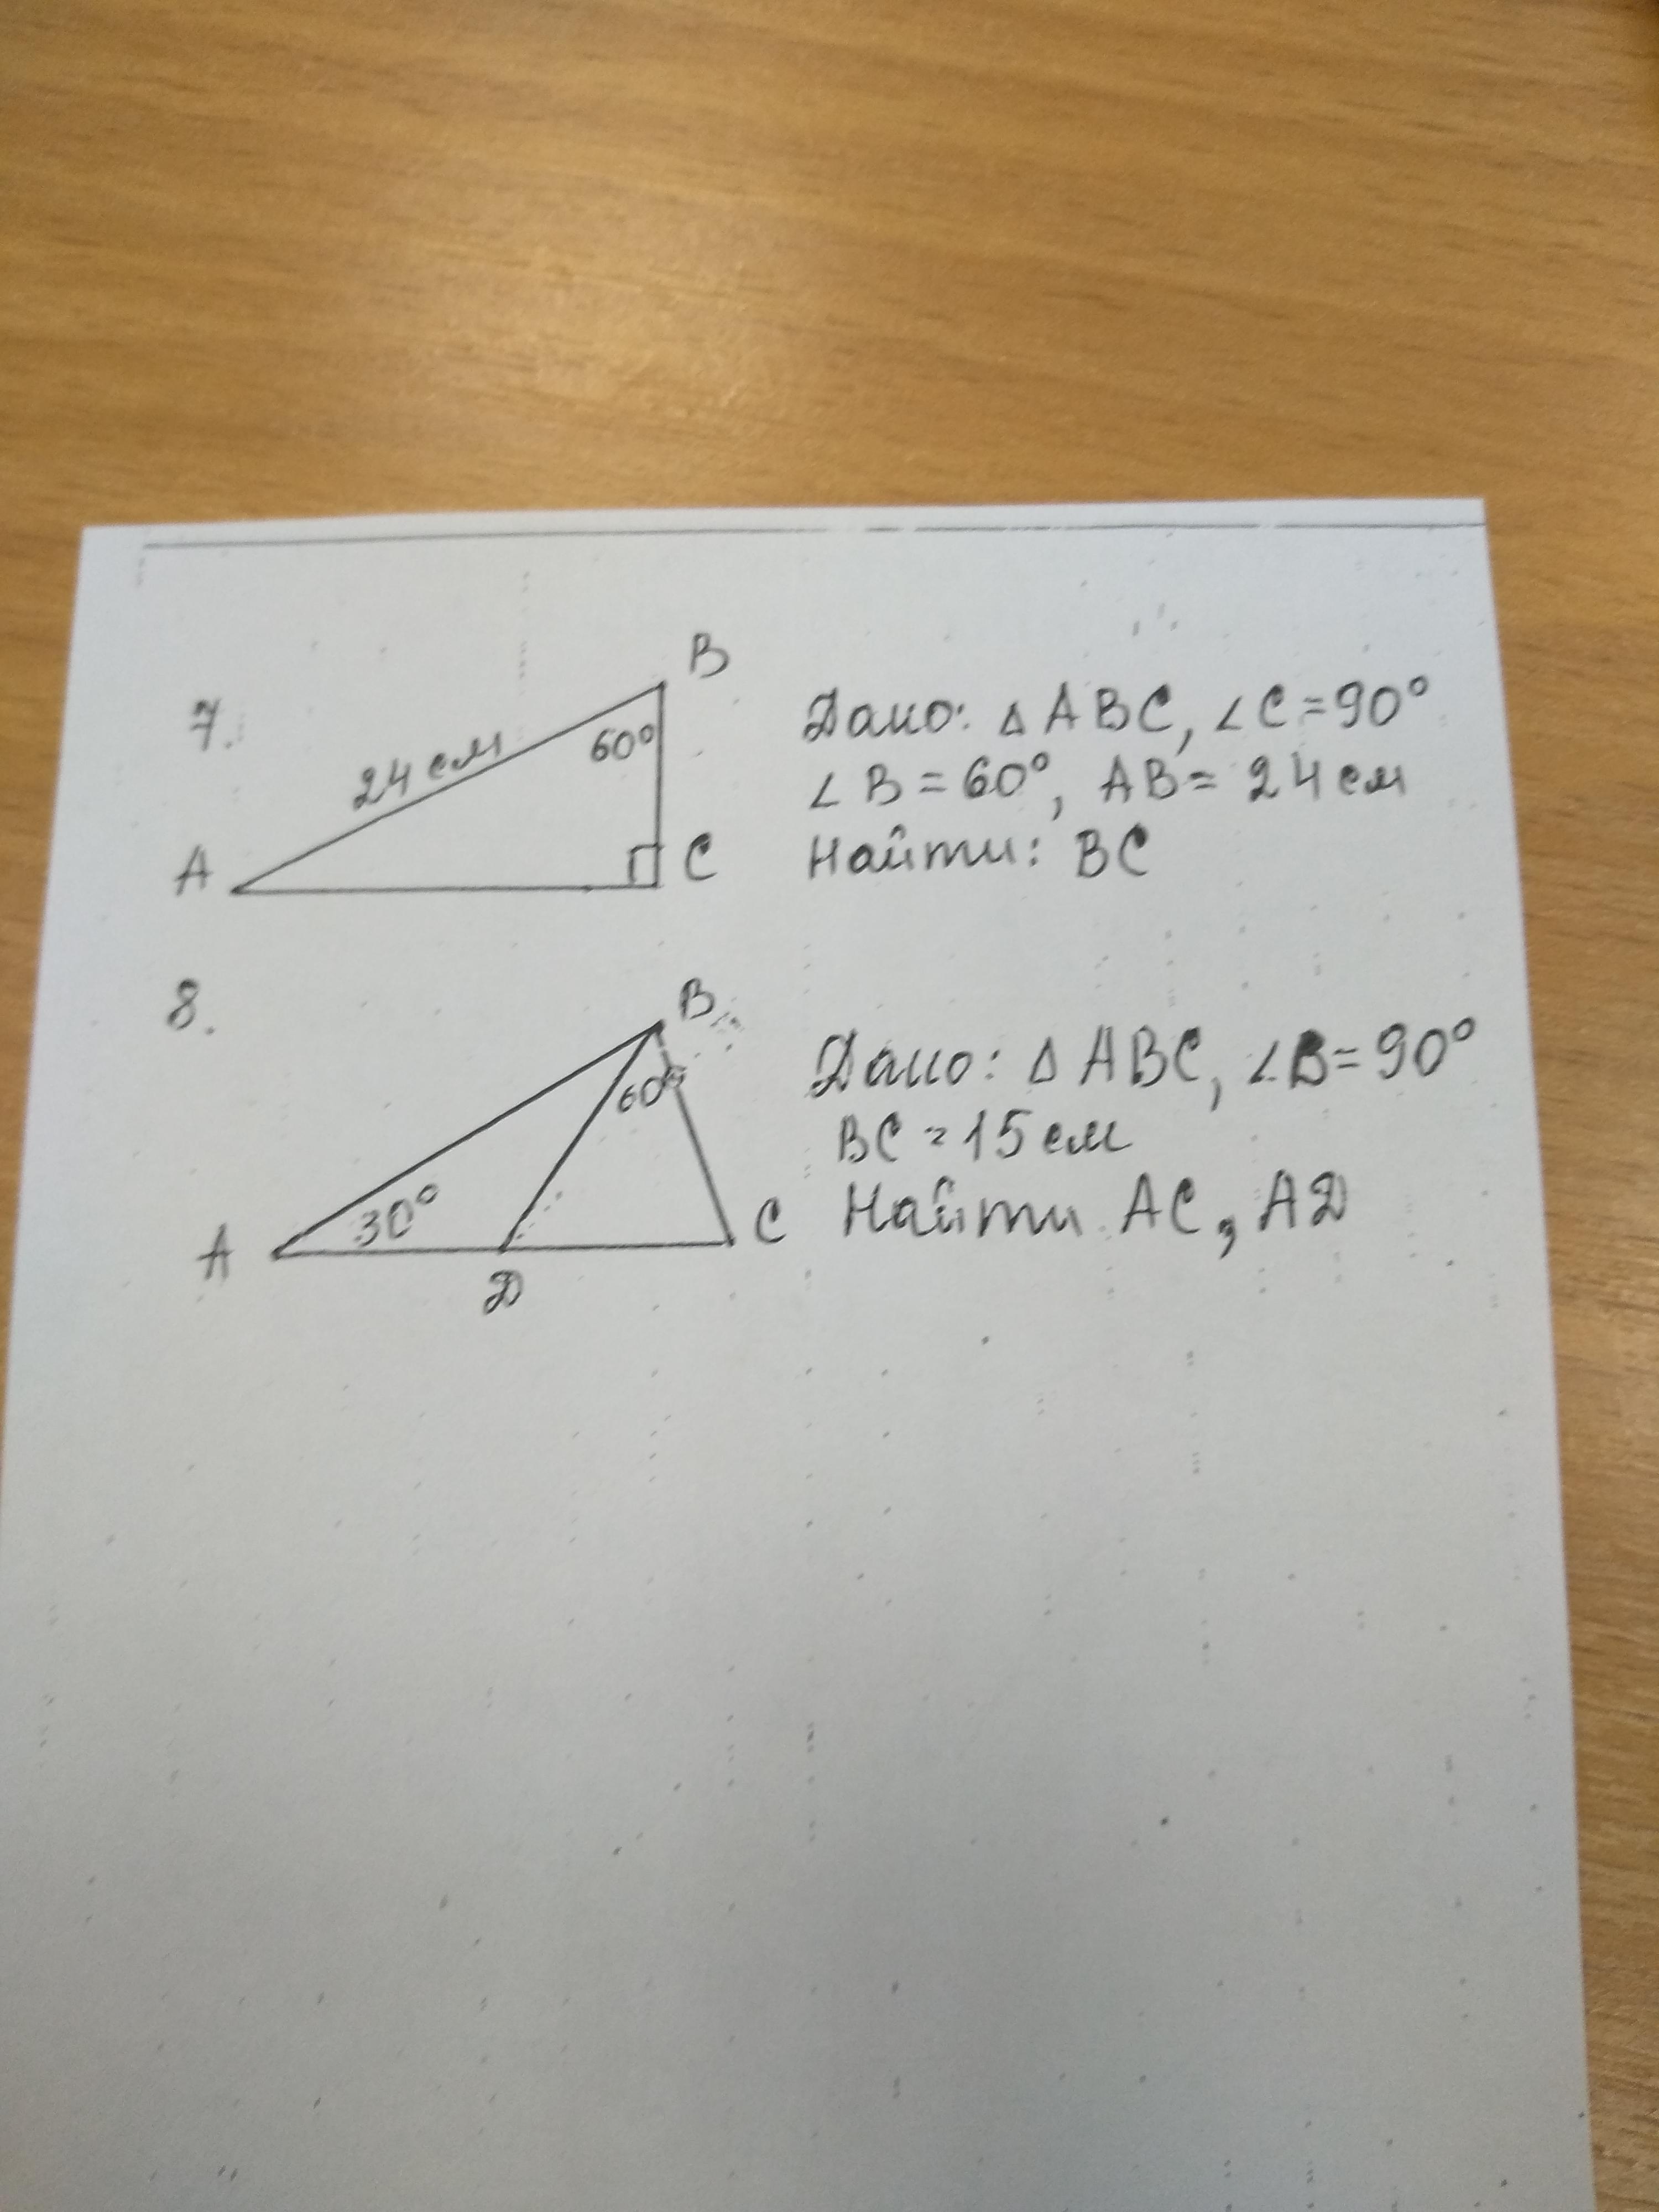 7.
B
24 см
60°
A
C
Дано: △ ABC, ∠C=90°
∠B=60°, AB=24 см
Найти: BC
8.
B
60°
30°
A
C
D
Дано: △ ABC, ∠B=90°
BC=15 см
Найти AC, AD